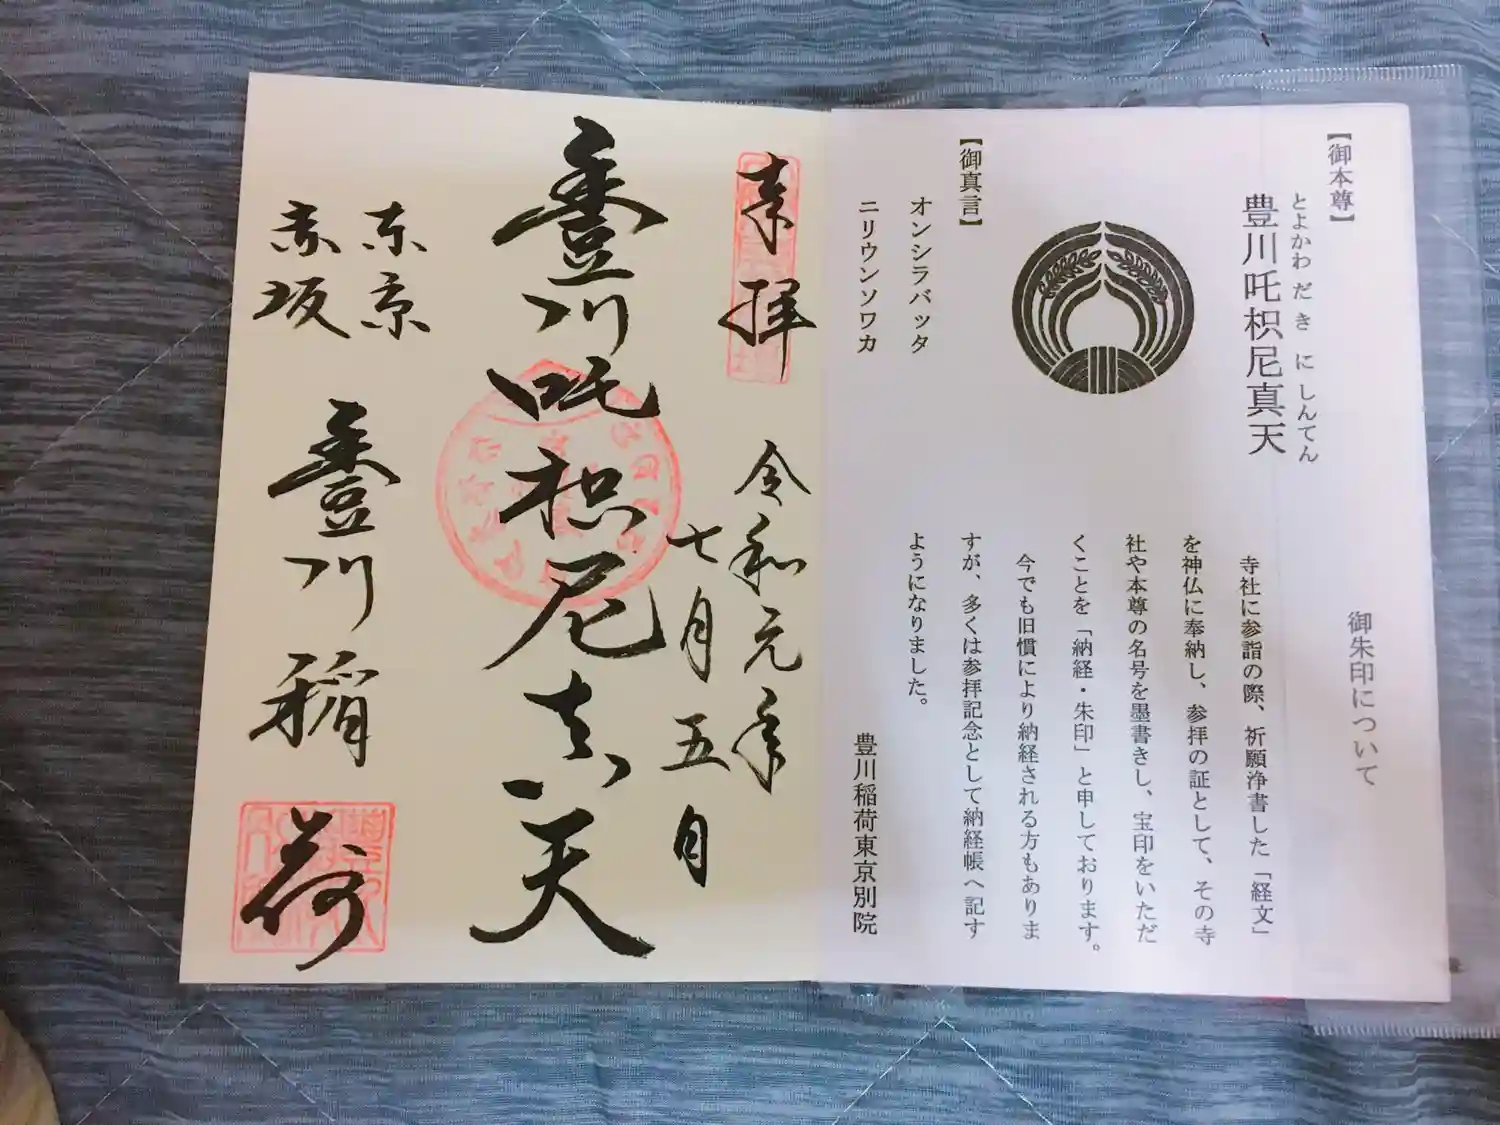 【御本尊】
とよかわ だ き に しんてん
豊川吒枳尼真天
【御真言】
オンシラバッタ
ニリウンソワカ
御朱印について
寺社に参詣の際、祈願浄書した「経文」
を神仏に奉納し、参拝の証として、その寺
社や本尊の名号を墨書きし、宝印をいただ
くことを「納経・朱印」と申しております。
今でも旧慣により納経される方もありま
すが、多くは参拝記念として納経帳へ記す
ようになりました。
豊川稲荷東京別院
奉拝
令和元年
七月五日
豊川吒枳尼真天
東京
赤坂
豊川稲荷